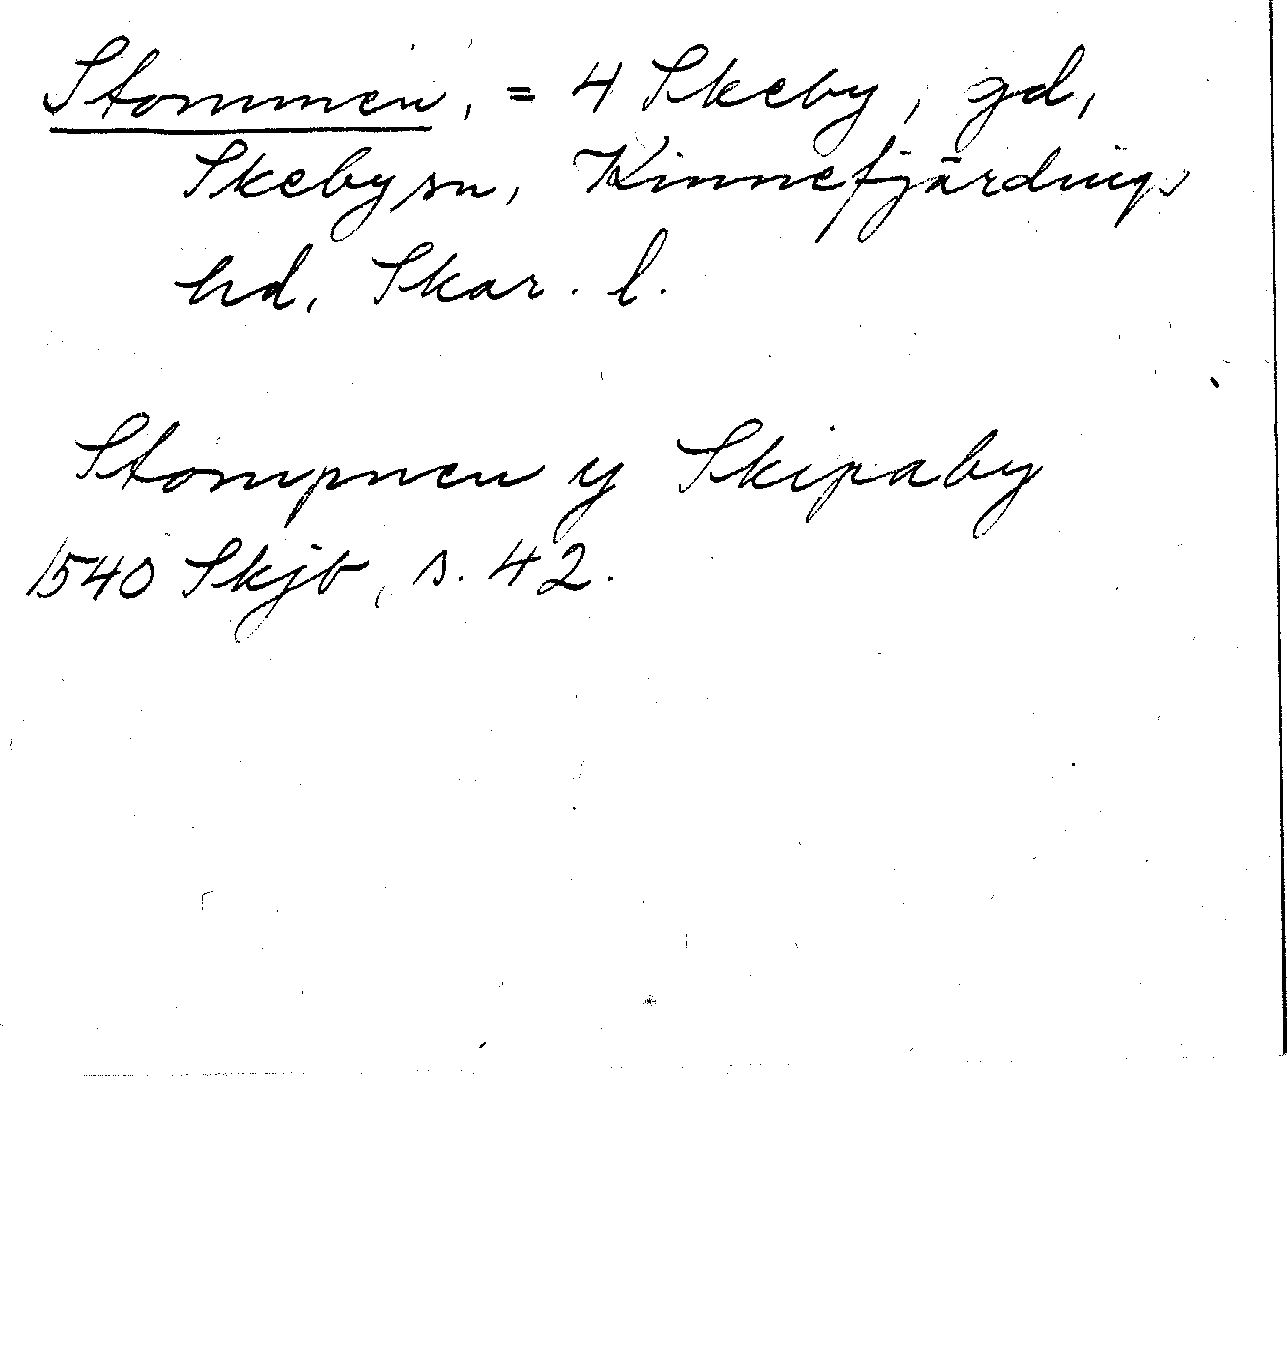 Stommen, = 4 Skeby, gd,
Skeby sn, Kinnefjärdings
hd, Skar. l.
Stompnen y Skipaby
1540 Skjb, s. 42.